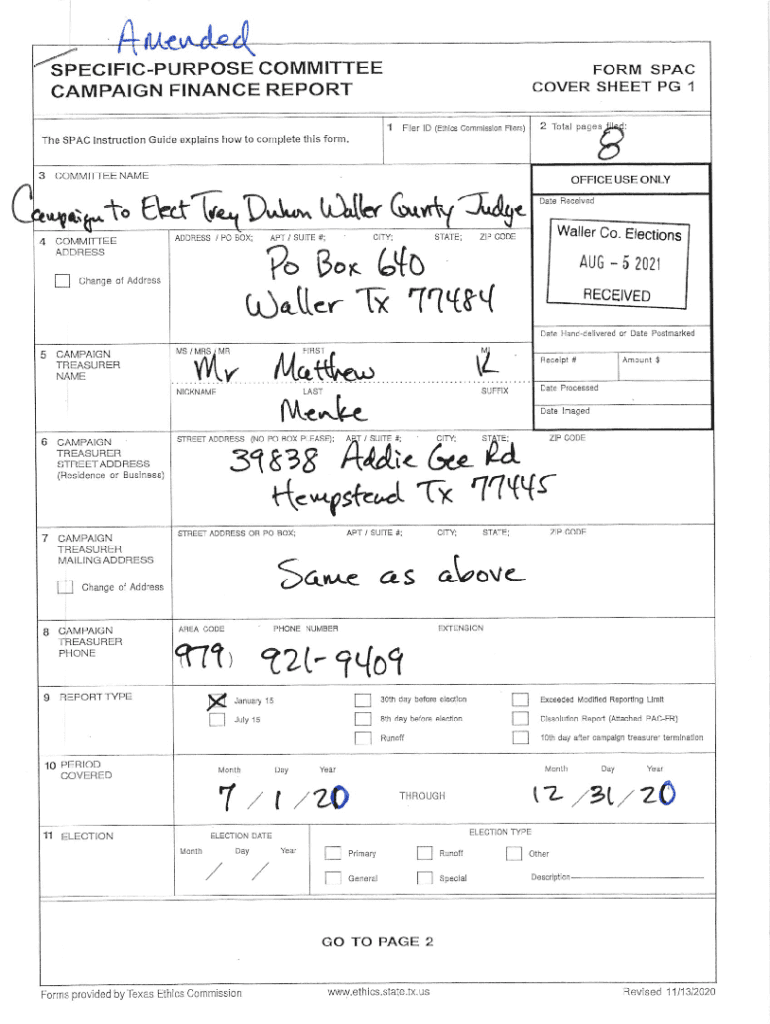 Amended
SPECIFIC-PURPOSE COMMITTEE
CAMPAIGN FINANCE REPORT
FORM SPAC
COVER SHEET PG 1
The SPAC Instruction Guide explains how to complete this form.
1 Filer ID (Ethics Commission Filers)
2 Total pages filed:
8
3 COMMITTEE NAME
Campaign to Elect Trey Duhon Waller County Judge
OFFICE USE ONLY
Date Received
Waller Co. Elections
AUG - 5 2021
RECEIVED
4 COMMITTEE
ADDRESS
Change of Address
ADDRESS / PO BOX; APT / SUITE #; CITY; STATE; ZIP CODE
Po Box 640
Waller Tx 77484
Date Hand-delivered or Date Postmarked
Receipt # Amount $
Date Processed
Date Imaged
5 CAMPAIGN
TREASURER
NAME
MS / MRS / MR FIRST MI
Mr Matthew K
NICKNAME LAST SUFFIX
Menke
6 CAMPAIGN
TREASURER
STREET ADDRESS
(Residence or Business)
STREET ADDRESS (NO PO BOX PLEASE); APT / SUITE #; CITY; STATE; ZIP CODE
39838 Addie Gee Rd
Hempstead Tx 77445
7 CAMPAIGN
TREASURER
MAILING ADDRESS
Change of Address
STREET ADDRESS OR PO BOX; APT / SUITE #; CITY; STATE; ZIP CODE
Same as above
8 CAMPAIGN
TREASURER
PHONE
AREA CODE PHONE NUMBER EXTENSION
(979) 921-9409
9 REPORT TYPE
January 15 30th day before election Exceeded Modified Reporting Limit
July 15 8th day before election Dissolution Report (Attached PAC-FR)
Runoff 10th day after campaign treasurer termination
10 PERIOD
COVERED
Month Day Year Month Day Year
7 / 1 / 20 THROUGH 12 / 31 / 20
11 ELECTION
ELECTION DATE ELECTION TYPE
Month Day Year
/ / Primary Runoff Other
General Special Description
GO TO PAGE 2
Forms provided by Texas Ethics Commission www.ethics.state.tx.us Revised 11/13/2020